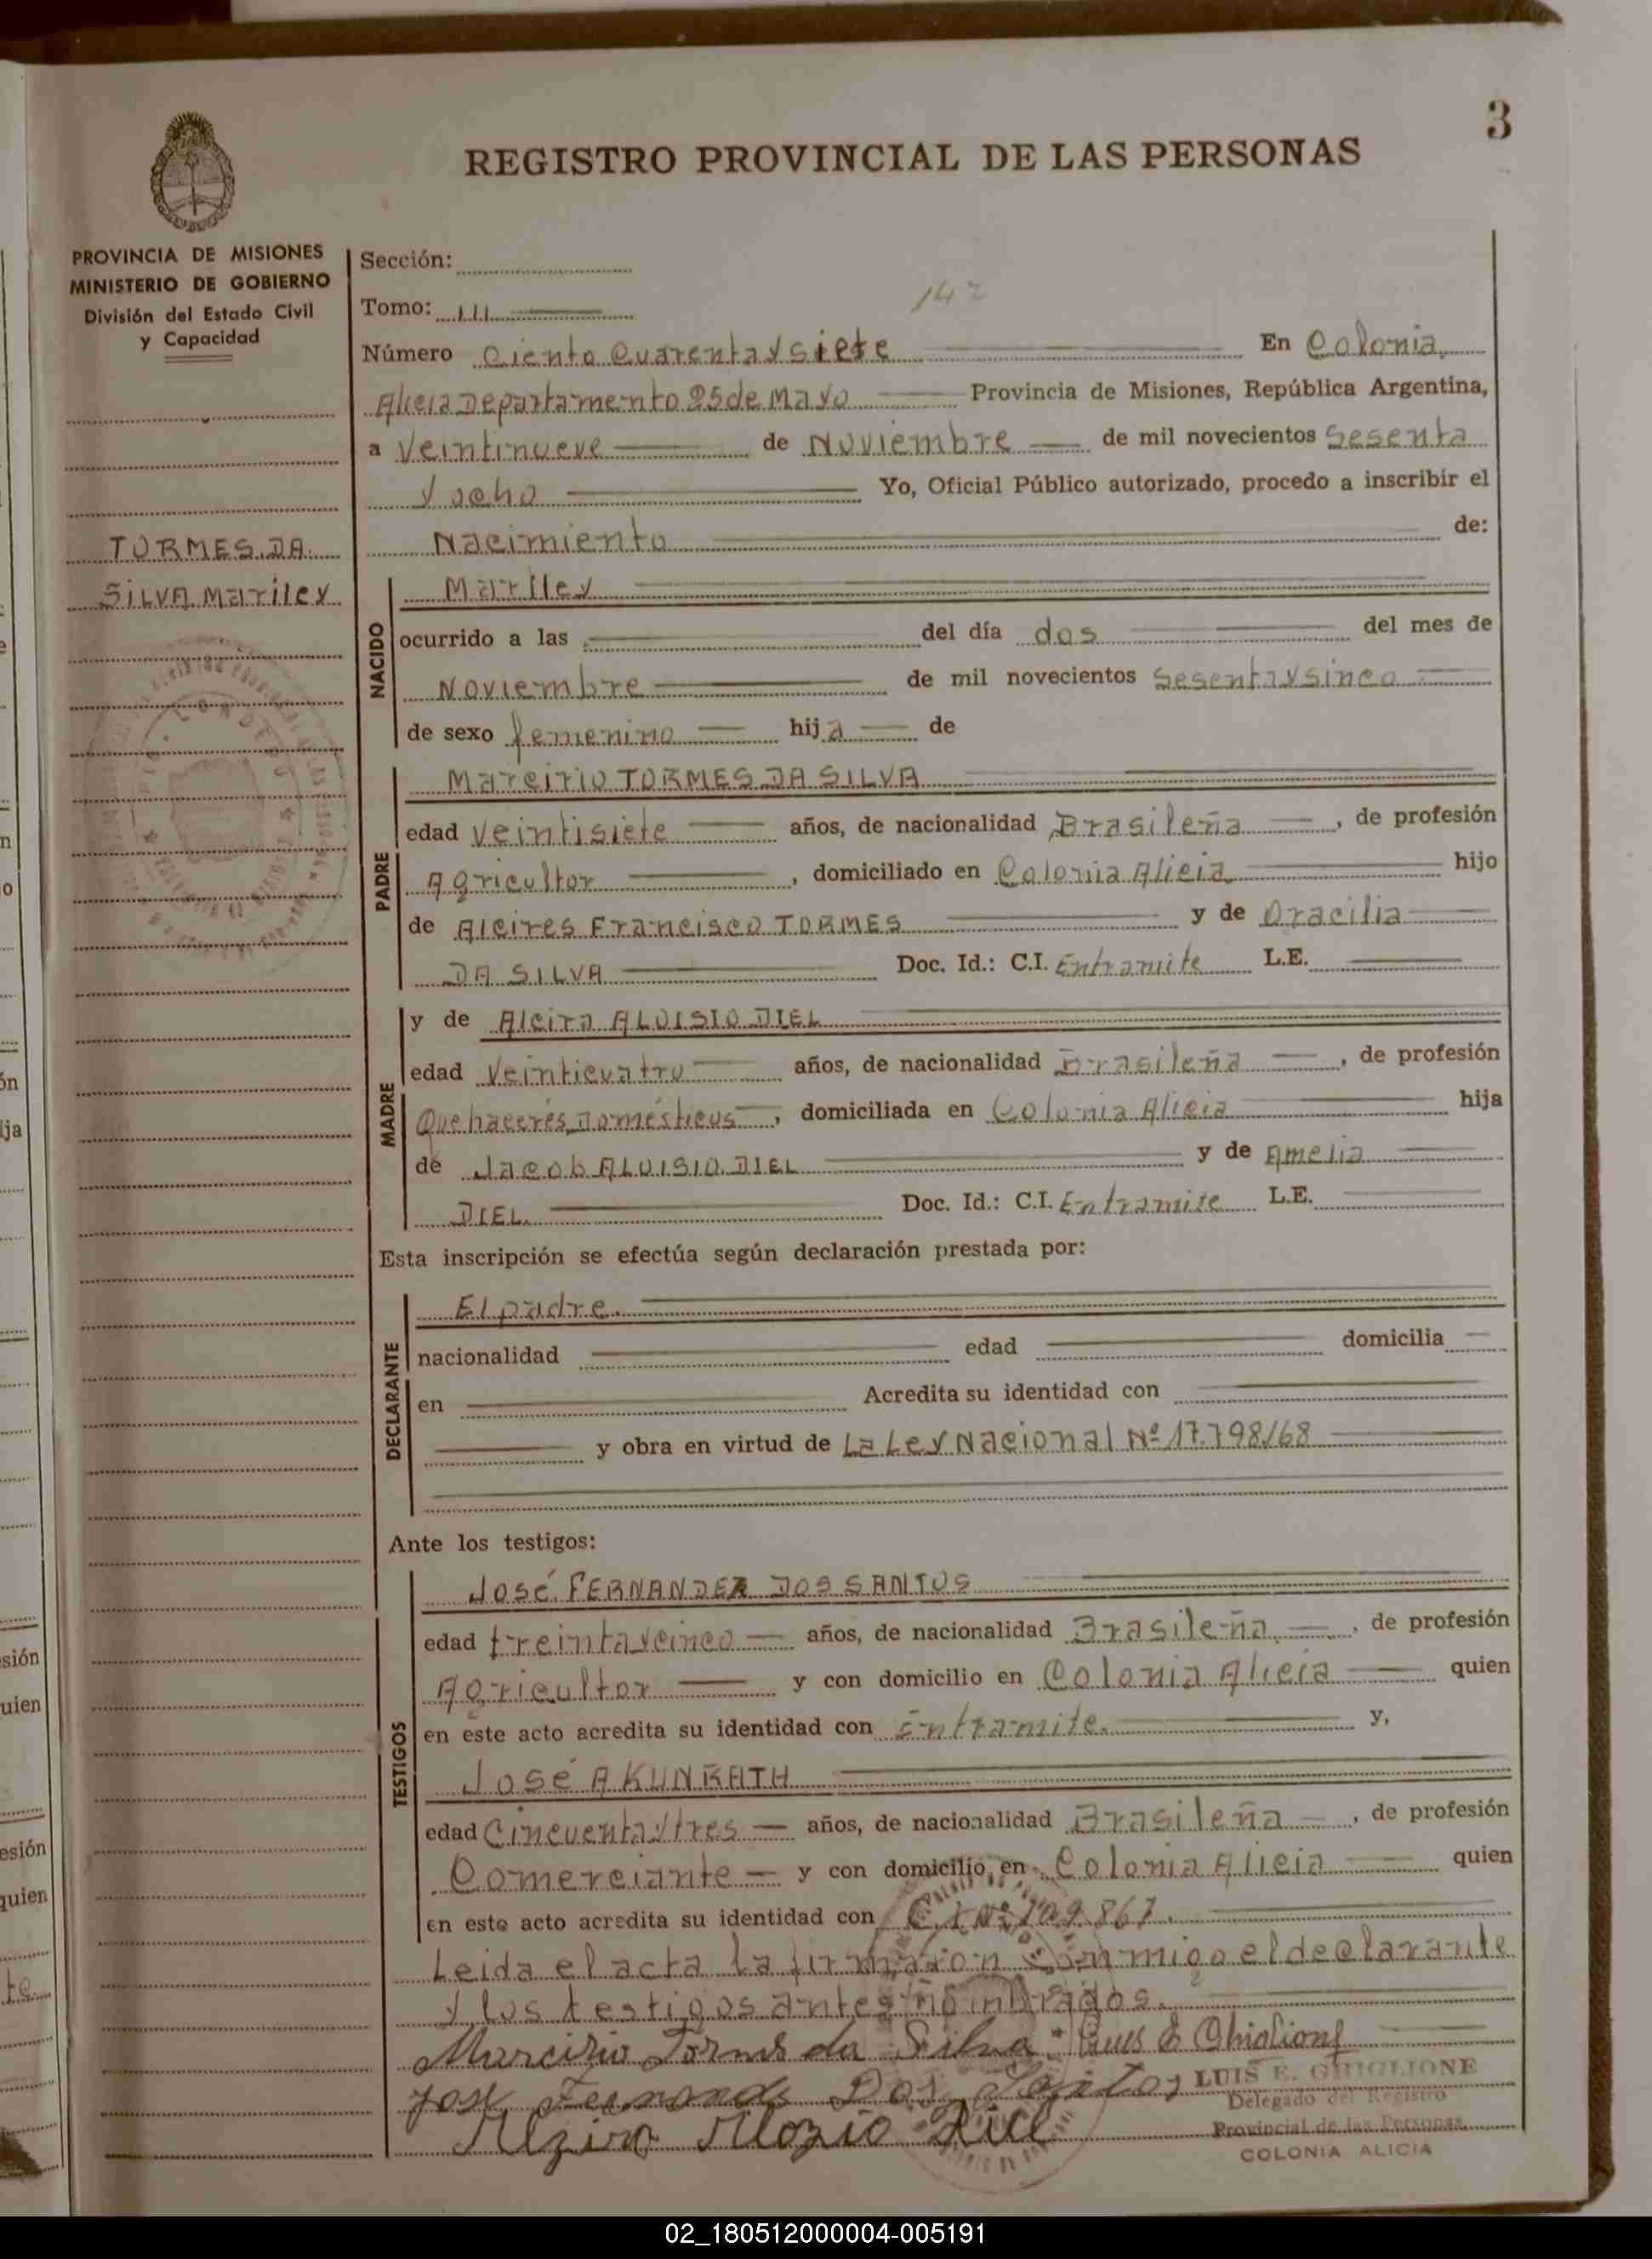 3
REGISTRO PROVINCIAL DE LAS PERSONAS
PROVINCIA DE MISIONES
MINISTERIO DE GOBIERNO
División del Estado Civil
y Capacidad
TORMES DA
SILVA Mariley
Sección:
Tomo: III
142
Número Ciento Cuarenta y siete En Colonia
Alicia Departamento 25 de Mayo Provincia de Misiones, República Argentina,
a Veintinueve de Noviembre de mil novecientos Sesenta
y ocho Yo, Oficial Público autorizado, procedo a inscribir el
Nacimiento de:
NACIDO
Marlley
ocurrido a las del día dos del mes de
Noviembre de mil novecientos Sesenta y sinco
de sexo femenino hija de
PADRE
Marcirio TORMES DA SILVA
edad Veintisiete años, de nacionalidad Brasileña, de profesión
Agricultor, domiciliado en Colonia Alicia hijo
de Alcires Francisco TORMES y de Oracilia
DA SILVA Doc. Id.: C.I. Entramite L.E.
MADRE
y de Alcira ALOISIO DIEL
edad Veinticuatro años, de nacionalidad Brasileña, de profesión
Quehaceres Domésticos, domiciliada en Colonia Alicia hija
de Jacob ALOISIO DIEL y de Amelia
DIEL Doc. Id.: C.I. Entramite L.E.
Esta inscripción se efectúa según declaración prestada por:
DECLARANTE
El padre.
nacionalidad edad domicilia
en Acredita su identidad con
y obra en virtud de La Ley Nacional Nº 17.798/68
Ante los testigos:
TESTIGOS
José FERNANDEZ DOS SANTOS
edad treinta y cinco años, de nacionalidad Brasileña, de profesión
Agricultor y con domicilio en Colonia Alicia quien
en este acto acredita su identidad con Entramite. y,
José A KUNRATH
edad Cincuenta y tres años, de nacionalidad Brasileña, de profesión
Comerciante y con domicilio en Colonia Alicia quien
en este acto acredita su identidad con C.I Nº 109.867.
Leida el acta la firmaron conmigo el declarante
y los testigos antes nombrados.
Marcirio Tormes da Silva Luis E Ghiglione
LUIS E. GHIGLIONE
Jose Fernandes Dos Santos
Delegado del Registro
Provincial de las Personas
Alziro Alozio Diel
COLONIA ALICIA
02_180512000004-005191